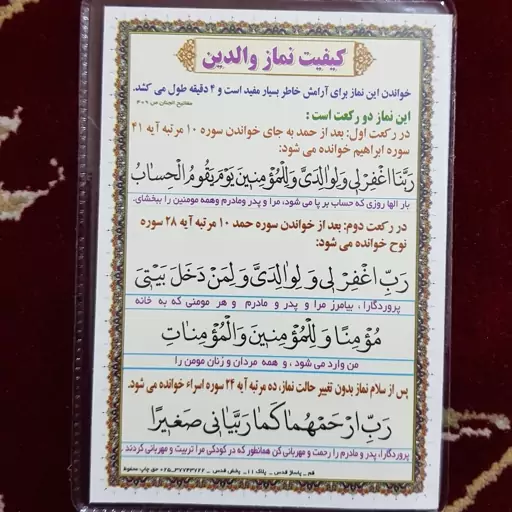 کیفیت نماز والدین
خواندن این نماز برای آرامش خاطر بسیار مفید است و ۴ دقیقه طول می کشد.
مفاتیح الجنان ص ۴۰۹
این نماز دو رکعت است :
در رکعت اول: بعد از حمد به جای خواندن سوره ۱۰ مرتبه آیه ۴۱
سوره ابراهیم خوانده می شود:
رَبَّنَا اغْفِرْ لِی وَ لِوالِدَیَّ وَ لِلْمُؤْمِنینَ یَوْمَ یَقُومُ الْحِسابُ
بار الها روزی که حساب بر پا می شود، مرا و پدر ومادرم وهمه مومنین را ببخشای.
در رکعت دوم: بعد از خواندن سوره حمد ۱۰ مرتبه آیه ۲۸ سوره
نوح خوانده می شود:
رَبِّ اغْفِرْ لی وَ لِوالِدَیَّ وَ لِمَنْ دَخَلَ بَیْتِیَ
پروردگارا، بیامرز مرا و پدر و مادرم و هر مومنی که به خانه
مُؤْمِنًا وَ لِلْمُؤْمِنینَ وَ الْمُؤْمِناتِ
من وارد می شود ، و همه مردان و زنان مومن را
پس از سلام نماز بدون تغییر حالت نماز، ده مرتبه آیه ۲۴ سوره اسراء خوانده می شود.
رَبِّ ارْحَمْهُما کَما رَبَّیانی صَغیرًا
پروردگارا، پدر و مادرم را رحمت و مهربانی کن همانطور که در کودکی مرا تربیت و مهربانی کردند
قم _ پاساژ قدس _ پلاک ۱۱ _ پخش قدس _ ۳۷۷۴۳۶۲۲_۰۲۵ حق چاپ محفوظ